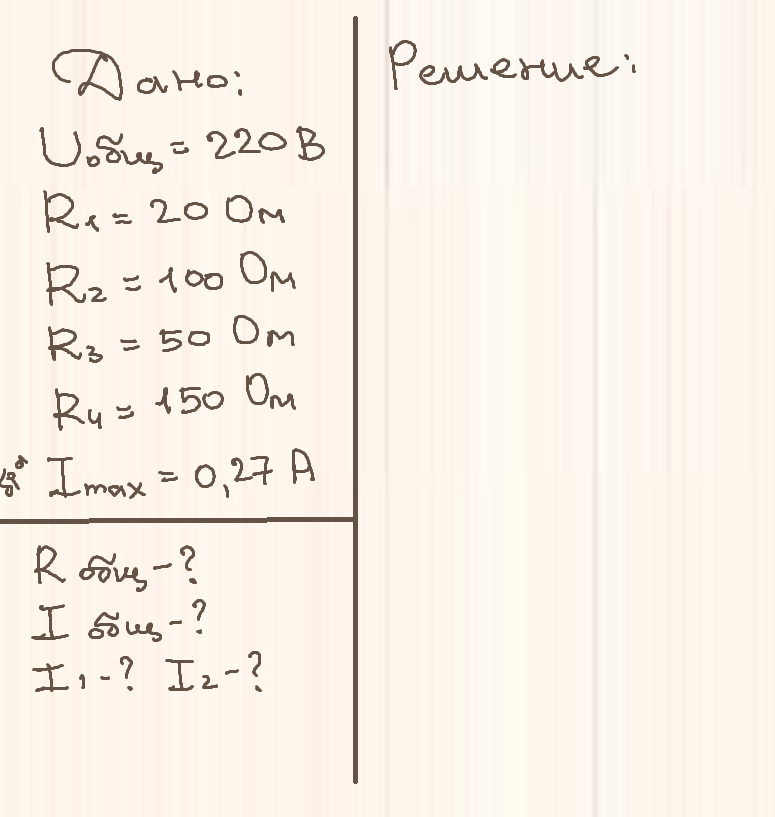 Дано:
Uобщ = 220 В
R1 = 20 Ом
R2 = 100 Ом
R3 = 50 Ом
R4 = 150 Ом
Imax = 0,27 А
R общ - ?
I общ - ?
I1 - ? I2 - ?
Решение: